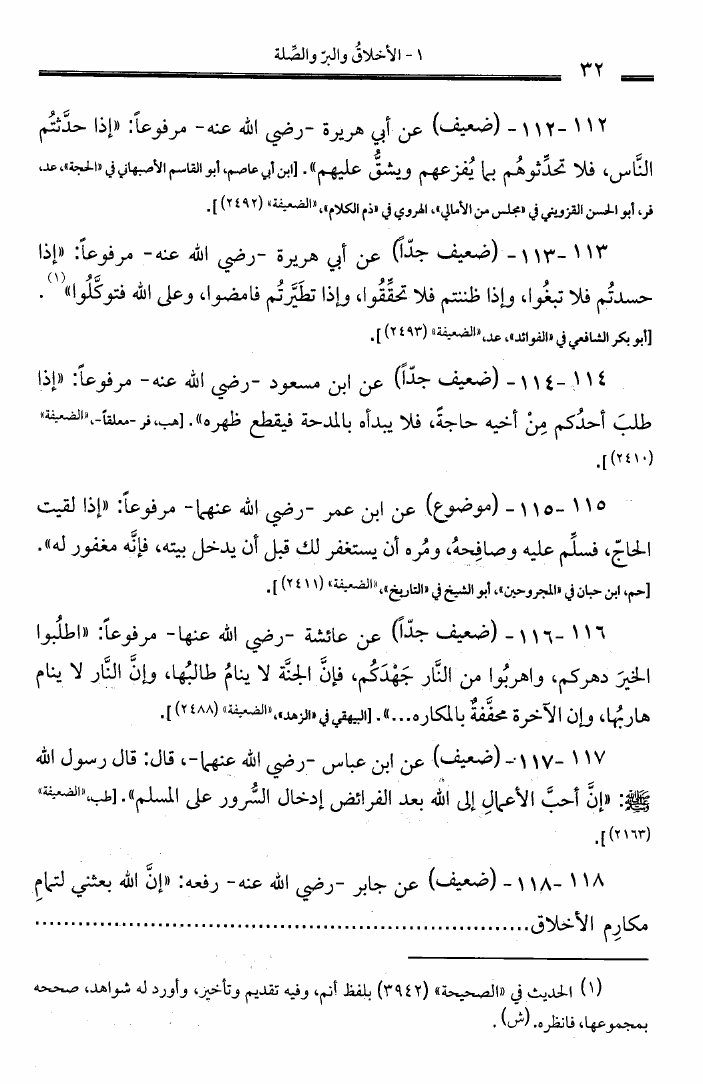 ١ - الأخلاقُ والبرّ والصِّلة
٣٢
١١٢ -١١٢- (ضعيف) عن أبي هريرة -رضي الله عنه- مرفوعاً: «إذا حدَّثتُم
النَّاس، فلا تحدِّثوهُم بما يُفزعهم ويشقُّ عليهم». [ابن أبي عاصم، أبو القاسم الأصبهاني في «الحجة»، عد،
فر، أبو الحسن القزويني في «مجلس من الأمالي»، الهروي في «ذم الكلام»، «الضعيفة» (٢٤٩٢)].
١١٣ -١١٣- (ضعيف جدّاً) عن أبي هريرة -رضي الله عنه- مرفوعاً: «إذا
حسدتُم فلا تبغُوا، وإذا ظننتم فلا تحقِّقُوا، وإذا تطيَّرتُم فامضوا، وعلى الله فتوكَّلُوا»(١).
[أبو بكر الشافعي في «الفوائد»، عد، «الضعيفة» (٢٤٩٣)].
١١٤ -١١٤- (ضعيف جدّاً) عن ابن مسعود -رضي الله عنه- مرفوعاً: «إذا
طلبَ أحدُكم مِنْ أخيه حاجةً، فلا يبدأه بالمدحة فيقطع ظهره». [هب، فر -معلقاً-، «الضعيفة»
(٢٤١٠)].
١١٥ -١١٥- (موضوع) عن ابن عمر -رضي الله عنهما- مرفوعاً: «إذا لقيت
الحاجّ، فسلِّم عليه وصافِحهُ، ومُره أن يستغفر لك قبل أن يدخل بيته، فإنَّه مغفور له».
[حم، ابن حبان في «المجروحين»، أبو الشيخ في «التاريخ»، «الضعيفة» (٢٤١١)].
١١٦ -١١٦- (ضعيف جدّاً) عن عائشة -رضي الله عنها- مرفوعاً: «اطلُبوا
الخيرَ دهركم، واهربُوا من النَّار جَهْدَكُم، فإنَّ الجنَّة لا ينامُ طالبُها، وإنَّ النَّار لا ينام
هاربُها، وإن الآخرة محفَّفةٌ بالمكاره...». [البيهقي في «الزهد»، «الضعيفة» (٢٤٨٨)].
١١٧ -١١٧- (ضعيف) عن ابن عباس -رضي الله عنهما-، قال: قال رسول الله
ﷺ: «إنَّ أحبَّ الأعمالِ إلى الله بعد الفرائض إدخال السُّرور على المسلم». [طب، «الضعيفة»
(٢١٦٣)].
١١٨ -١١٨- (ضعيف) عن جابر -رضي الله عنه- رفعه: «إنَّ الله بعثني لتمامِ
مكارِم الأخلاق..............................................................
(١) الحديث في «الصحيحة» (٣٩٤٢) بلفظ أتم، وفيه تقديم وتأخير، وأورد له شواهد، صححه
بمجموعها، فانظره. (ش).